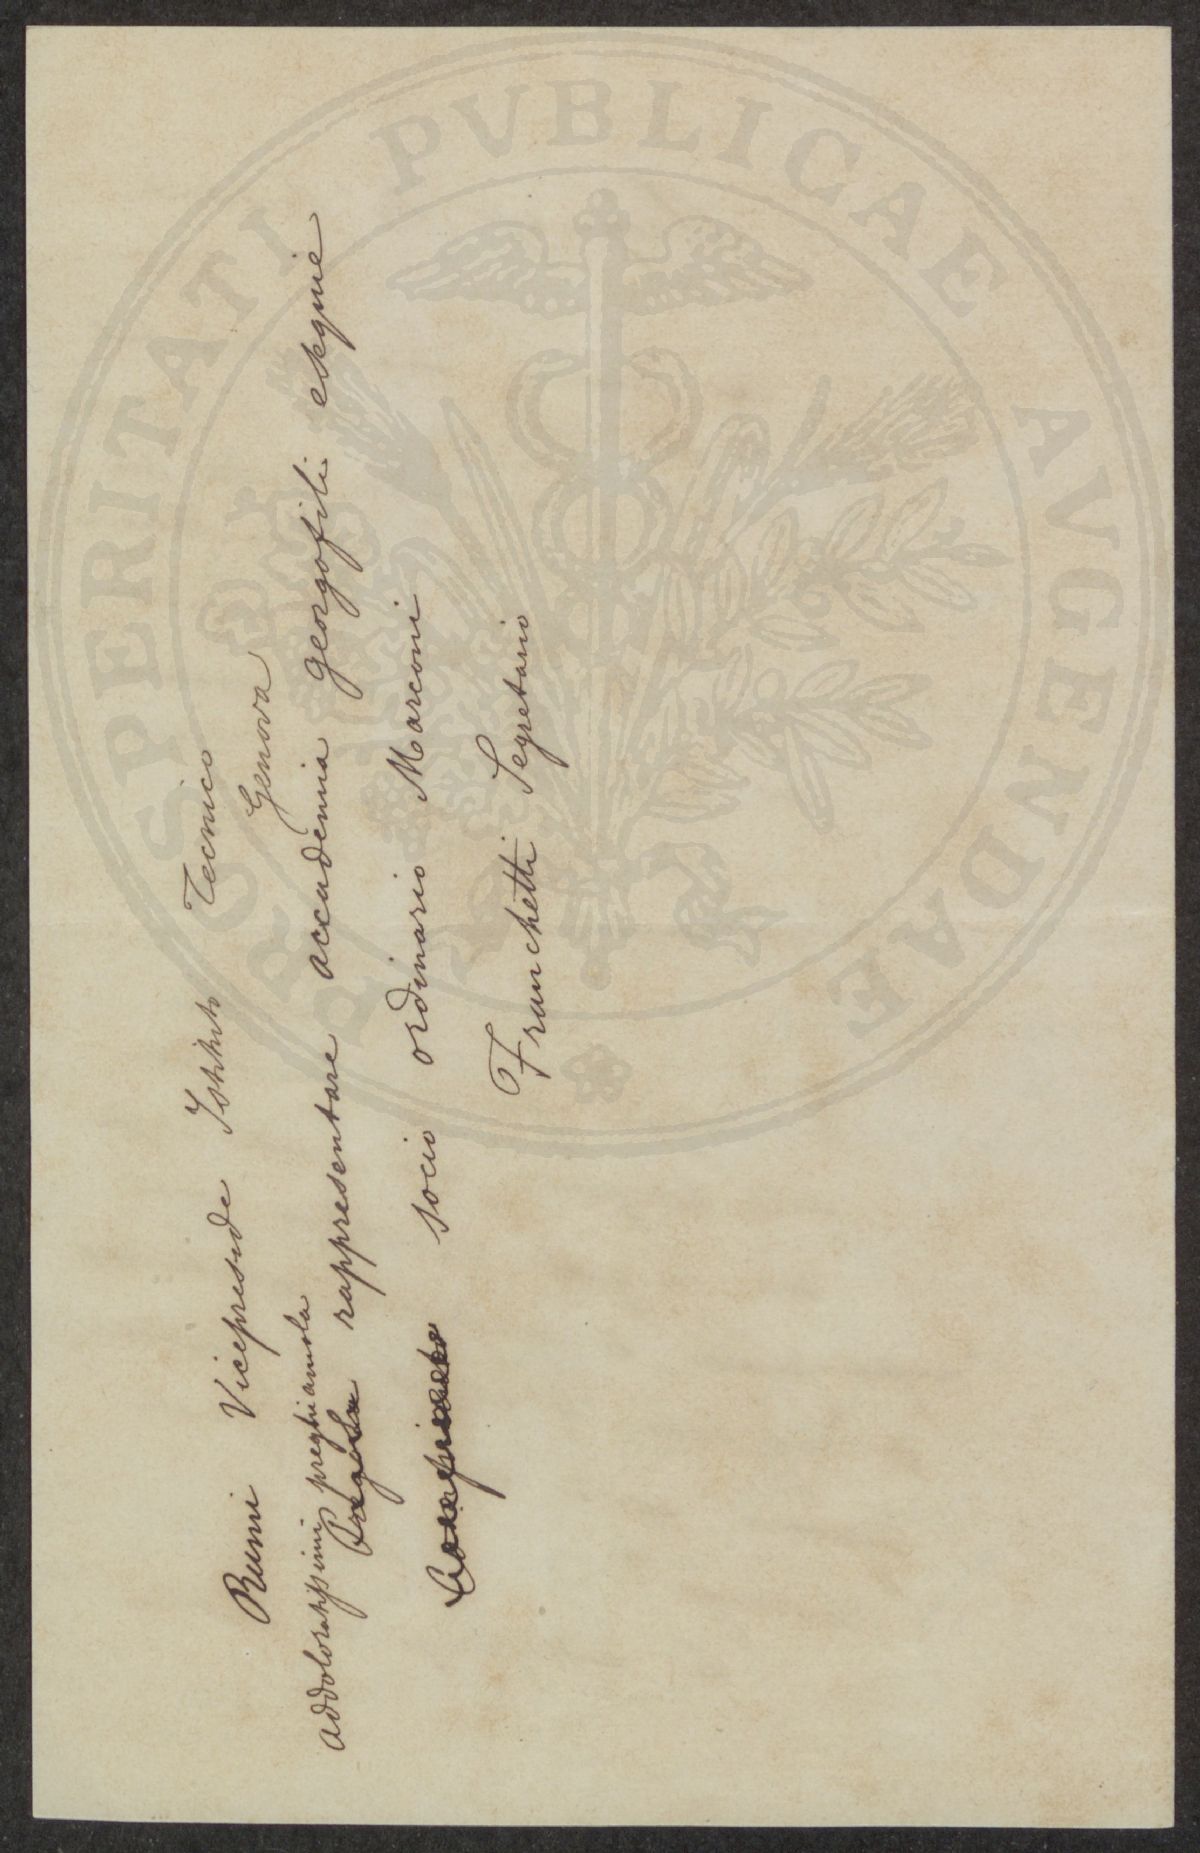 Reini Vicepreside Istituto Tecnico
Genova
addoloratissimi preghiamola
Pregola rappresentare accademia georgofili esequie
socio ordinario Marconi
Franchetti Segretario
PROSPERITATI PVBLICAE AVGENDAE